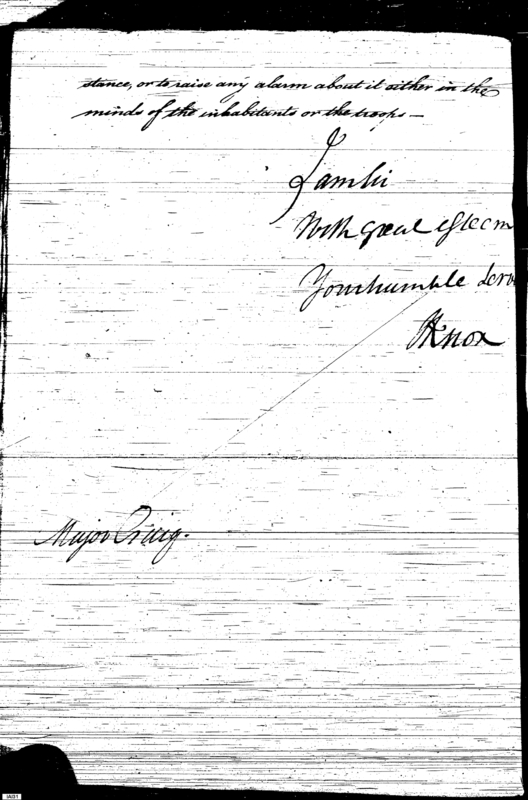 stance, or to raise any alarm about it either in the
minds of the inhabitants or the troops —
I am Sir
With great esteem
Your humble Serv
HKnox
Major Craig.
IA01